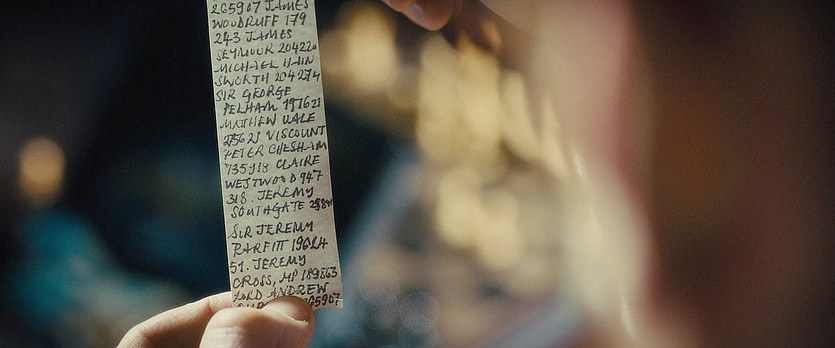 265907 JAMES
WOODRUFF 179
243 JAMES
SEYMOUR 20422
MICHAEL HAIN
SWORTH 204274
SIR GEORGE
PELHAM 197621
MATTHEW VALE
27562 VISCOUNT
PETER CHESHAM
735918 CLAIRE
WESTWOOD 947
318. JEREMY
SOUTHGATE
SIR JEREMY
PARFITT 19624
51. JEREMY
CROSS, MP 189863
LORD ANDREW
265907